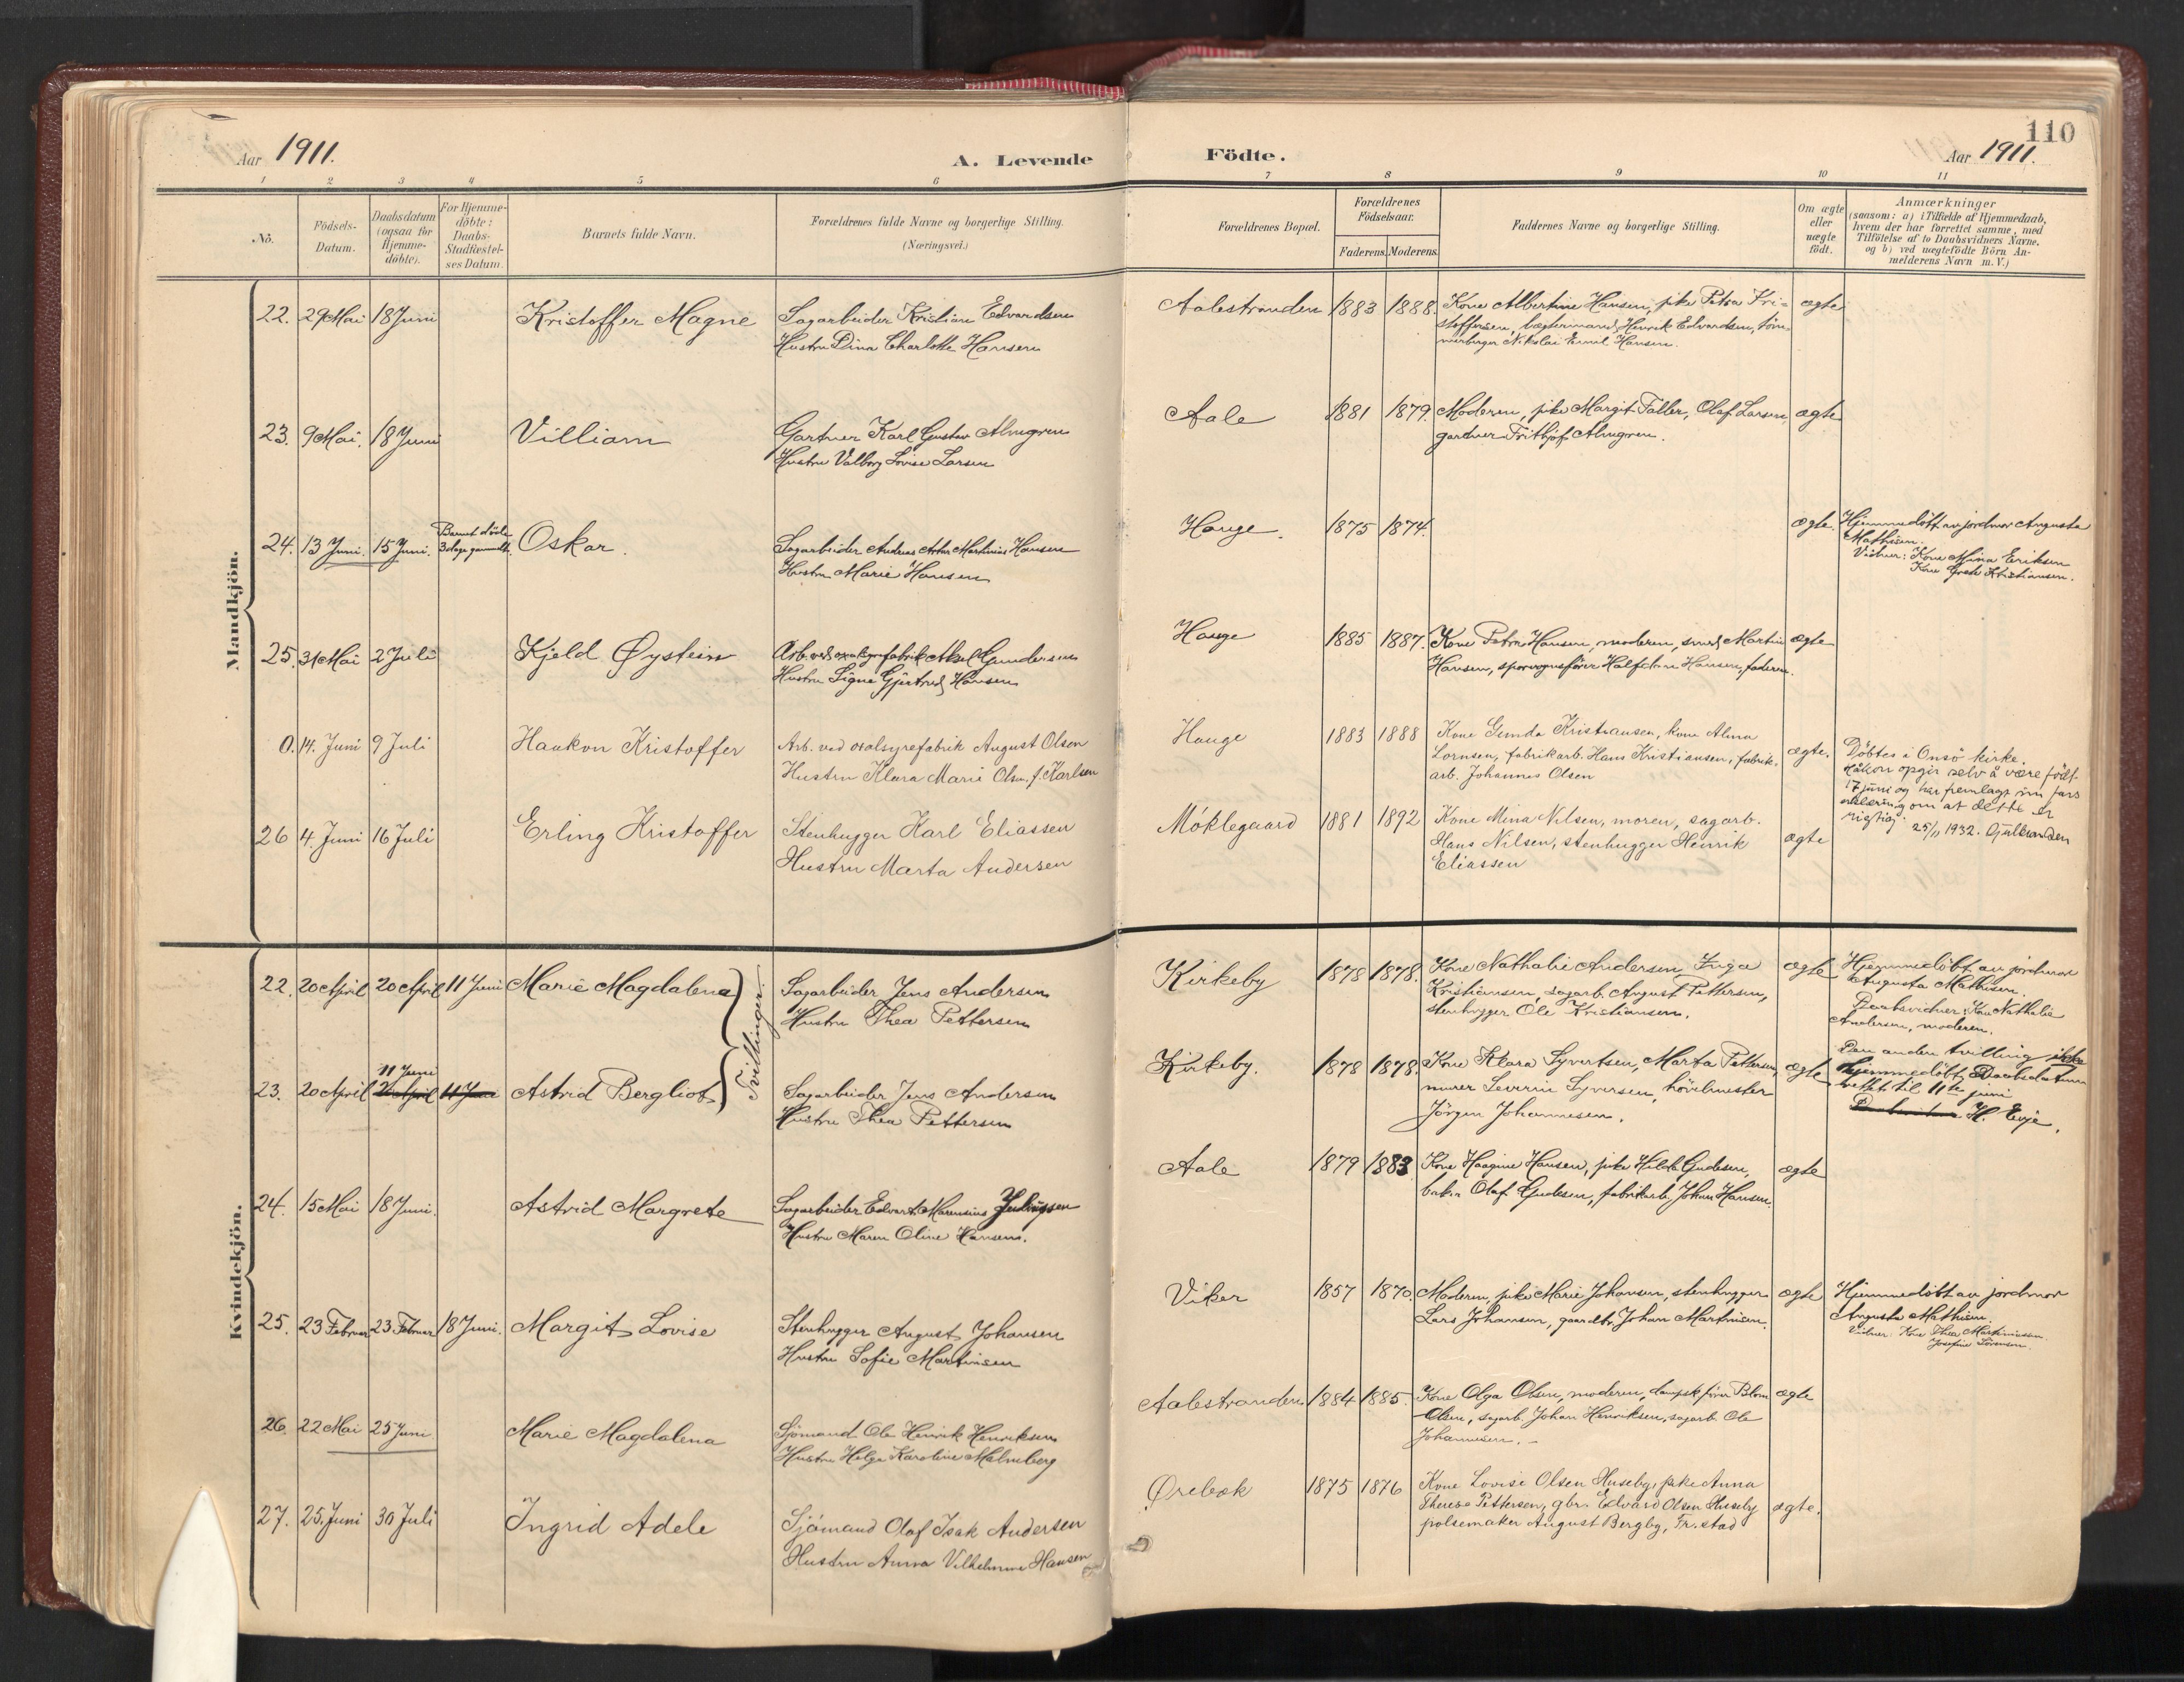 110
Aar 1911.
A. Levende
Födte.
Aar 1911.
1 2 3 4 5 6 7 8 9 10 11
No.
Födsels-
Datum.
Daabsdatum
(ogsaa for
Hjemme-
döbte).
For Hjemme-
döbte:
Daabs-
Stadfæstel-
ses Datum.
Barnets fulde Navn.
Forældrenes fulde Navne og borgerlige Stilling.
(Næringsvei.)
Forældrenes Bopæl.
Forældrenes
Födselsaar.
Faderens. Moderens.
Faddernes Navne og borgerlige Stilling.
Om ægte
eller
uægte
födt.
Anmærkninger
(saasom: a) i Tilfælde af Hjemmedaab,
hvem der har forrettet samme, med
Tilföielse af to Daabsvidners Navne,
og b) ved uægtefödte Börn An-
melderens Navn m. V.)
Mandkjön.
22. 29 Mai 18 Juni Kristoffer Magne
Sagarbeider Kristian Edvardsen
Hustru Dina Charlotte Hansen
Aalestranden 1883 1888.
Kone Albertine Hansen, pike Petra Kri-
stoffersen, Henrik Edvardsen, töm-
Nikolai Emil Hansen.
ægte
23. 9 Mai. 18 Juni Villiam
Gartner Karl Gustav Almgren
Hustru Valborg Lovise Larsen
Aale 1881 1879.
Moderen, pike Margit Faller, Olaf Larsen,
gartner Frithjof Almgren.
ægte
24. 13 Juni. 15 Juni. Barnet döde
3 dage gammelt. Oskar.
Sagarbeider Andreas Martinius Hansen
Hustru Marie Hansen
Hauge. 1875 1874.
ægte.
Hjemmedöbt av jordmor Augusta
Mathisen.
Vidner: Kone Mina Eriksen
Kone Grete Kristiansen.
25. 31 Mai 2 Juli Kjeld Øystein
Arb. ved oxalsyrefabrik Aksel Gundersen
Hustru Signe Gjertrud Hansen
Hauge 1885 1887.
Kone Petra Hansen, moderen, smed Martin
Hansen, sporvognsförer Halfdan Hansen, faderen.
ægte
0. 14. Juni 9 Juli Haakon Kristoffer
Arb. ved oxalsyrefabrik August Olsen
Hustru Klara Marie Olsen, f. Karlsen
Hauge 1883 1888
Kone Gunda Kristiansen, kone Alma
Lornsen, fabrikarb. Hans Kristiansen, fabrik-
arb. Johannes Olsen
ægte.
Döbtes i Onsö kirke.
Håkon opgir selv å være födt
17 juni og har fremlagt sin fars
erklæring om at dette er
riktig. 25/11 1932.
26 4. Juni 16 Juli Erling Kristoffer
Stenhugger Karl Eliassen
Hustru Marta Andersen
Möklegaard 1881 1892
Kone Mina Nilsen, moren, sagarb.
Hans Nilsen, stenhugger Henrik
Eliassen
ægte
Kvindekjön.
22. 20 April 20 April 11 Juni Marie Magdalena
Tvillinger.
Sagarbeider Jens Andersen
Hustru Thea Pettersen
Kirkeby 1878 1878.
Kone Nathalie Andersen, Inga
Kristiansen, sagarb. August Pettersen,
stenhugger Ole Kristiansen.
ægte
Hjemmedöbt av jordmor
Augusta Mathisen.
Daabsvidner: Kone Nathalie
Andersen, moderen.
11 Juni
23. 20 April 20 April 11 Juni Astrid Bergliot
Sagarbeider Jens Andersen
Hustru Thea Pettersen
Kirkeby. 1878 1878.
Kone Klara Syvertsen, Marta Pettersen,
murer Severin Syversen, hövlmester
Jörgen Johannesen.
ægte
Den anden tvilling ikke
hjemmedöbt. Daabsdatum
rettet til 11te juni
H. Evje.
24. 15 Mai 18 Juni. Astrid Margrete
Sagarbeider Edvart Marensius Juliussen
Hustru Maren Oline Hansen.
Aale 1879 1883
Kone Haagine Hansen, pike Hilda Gudesen,
baker Olaf Gudesen, fabrikarb. Johan Hansen.
ægte
25. 23 Februar 23 Februar 18 Juni. Margit Lovise
Stenhugger August Johansen
Hustru Sofie Martinsen
Viker 1857 1870.
Moderen, pike Marie Johansen, stenhugger
Lars Johansen, gaardbr. Johan Martinsen.
ægte
Hjemmedöbt av jordmor
Augusta Mathisen.
Vidner: Kone Thea Martiniussen
Josefine Sörensen.
26. 22 Mai 25 Juni Marie Magdalena
Sjömand Ole Henrik Henriksen
Hustru Helga Karoline Malmberg
Aalestranden 1884 1885.
Kone Olga Olsen, moderen, dampsk.förer Blom
Olsen, sagarb. Johan Henriksen, sagarb. Ole
Johannesen.
ægte
27. 25. Juni 30 Juli Ingrid Adele
Sjömand Olaf Isak Andersen
Hustru Anna Vilhelmine Hansen
Ørebæk 1875 1876
Kone Lovise Olsen Huseby, pike Anna
Therese Pettersen, gbr. Edvard Olsen Huseby
pölsemaker August Bergby, Fr.stad
ægte.